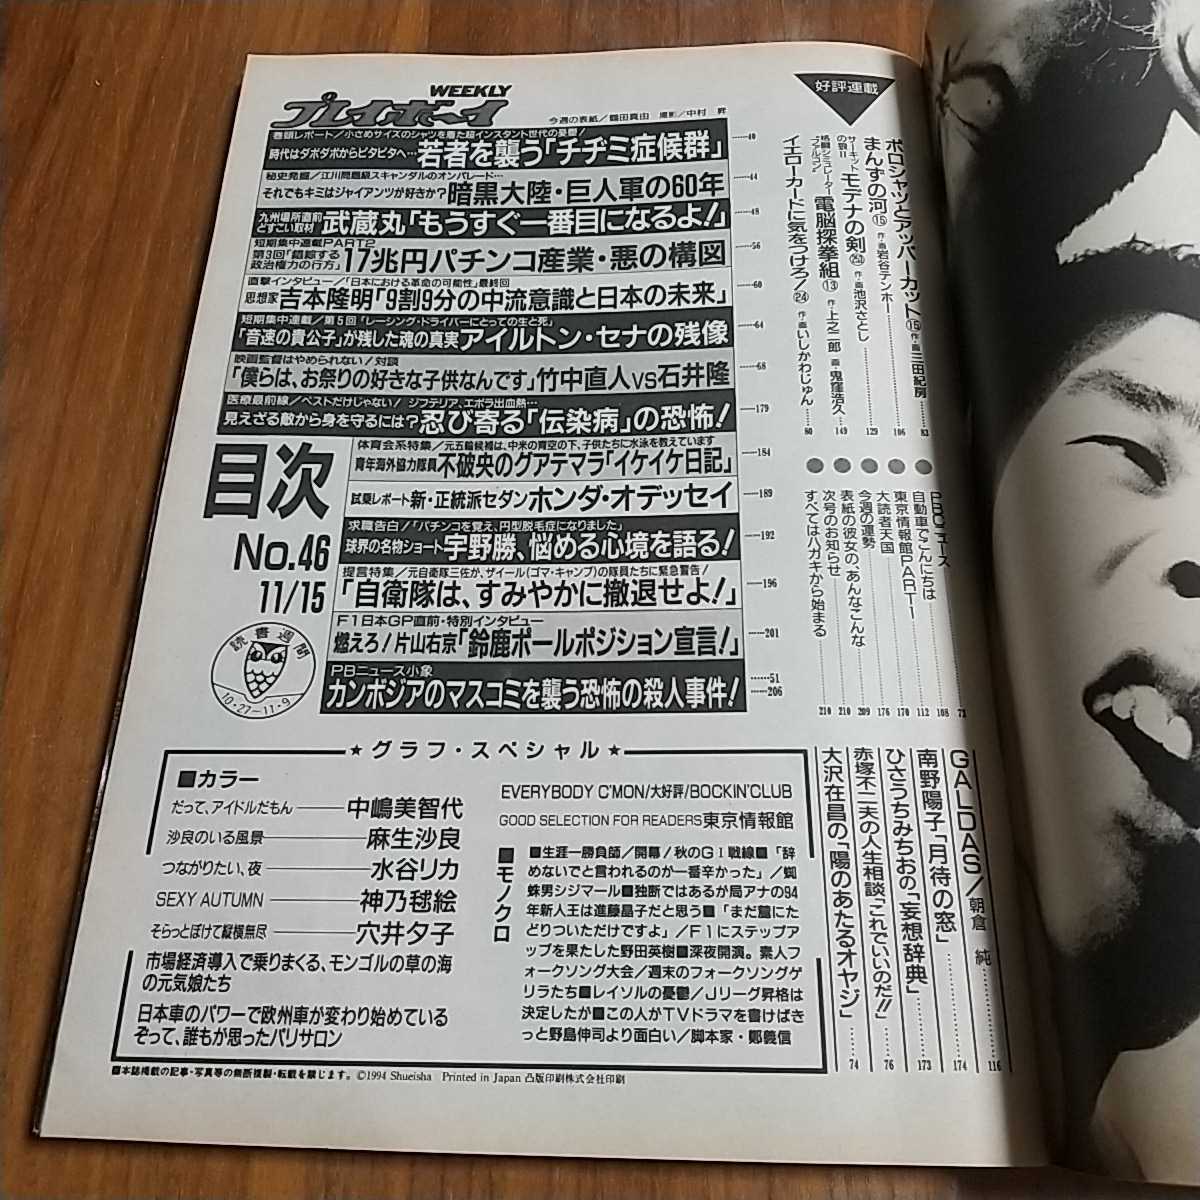 WEEKLY
プレイボーイ
今週の表紙／鶴田真由 撮影／中村 昇
巻頭レポート／小さめサイズのシャツを着た超インスタント世代の憂鬱！
時代はダボダボからピタピタへ…若者を襲う「チヂミ症候群」 40
秘史発掘／江川問題級スキャンダルのオンパレード…
それでもキミはジャイアンツが好きか？暗黒大陸・巨人軍の60年 44
九州場所直前
とすこい取材 武蔵丸「もうすぐ一番目になるよ！」 48
短期集中連載PART2
第3回「錯綜する
政治権力の行方」 17兆円パチンコ産業・悪の構図 56
直撃インタビュー／「日本における革命の可能性」最終回
思想家吉本隆明「9割9分の中流意識と日本の未来」 60
短期集中連載／第5回「レーシング・ドライバーにとっての生と死」
「音速の貴公子」が残した魂の真実アイルトン・セナの残像 64
映画監督はやめられない／対談
「僕らは、お祭りの好きな子供なんです」竹中直人VS石井隆 68
医療最前線／ペストだけじゃない！ ジフテリア、エボラ出血熱…
見えざる敵から身を守るには？忍び寄る「伝染病」の恐怖！ 179
体育会系特集／元五輪候補は、中米の青空の下、子供たちに水泳を教えています
青年海外協力隊員 不破央のグアテマラ「イケイケ日記」 184
試乗レポート 新・正統派セダンホンダ・オデッセイ 189
求職告白／「パチンコを覚え、円型脱毛症になりました」
球界の名物ショート宇野勝、悩める心境を語る！ 192
提言特集／元自衛隊三佐が、ザイール（ゴマ・キャンプ）の隊員たちに緊急警告！
「自衛隊は、すみやかに撤退せよ！」 196
F1日本GP直前・特別インタビュー
燃えろ！片山右京「鈴鹿ポールポジション宣言！」 201
PBニュース小象
カンボジアのマスコミを襲う恐怖の殺人事件！ 51 206
目次
No.46
11/15
読書週間
10・27―11・9
好評連載
ポロシャツとアッパーカット⑮ 作・画三田紀房 83
まんずの河⑮ 作・画岩谷テンホー 106
サーキットの狼II モデナの剣 作・画池沢さとし 129
格闘シミュレーター“ファルコン” 電脳探拳組⑬ 作・上之二郎 画・鬼窪浩久 149
イエローカードに気をつけろ！㉔ 作・画いしかわじゅん 80
PBニュース 73
自動車でこんにちは 108
東京情報館PART1 112
大読者天国 170
今週の運勢 176
表紙の彼女の、あんなこんな 209
次号のお知らせ 210
すべてはハガキから始まる 210
GALDAS／朝倉 純 116
南野陽子「月待の窓」 174
ひさうちみちおの「妄想辞典」 173
赤塚不二夫の人生相談「これでいいのだ!!」 76
大沢在昌の「陽のあたるオヤジ」 74
★グラフ・スペシャル★
■カラー
だって、アイドルだもん 中嶋美智代
沙良のいる風景 麻生沙良
つながりたい、夜 水谷リカ
SEXY AUTUMN 神乃毬絵
そらっとぼけて縦横無尽 穴井夕子
市場経済導入で乗りまくる、モンゴルの草の海
の元気娘たち
日本車のパワーで欧州車が変わり始めている
ぞって、誰もが思ったパリサロン
EVERYBODY C'MON/大好評/BOCKIN'CLUB
GOOD SELECTION FOR READERS東京情報館
■モノクロ
■生涯一勝負師／開幕！秋のGI戦線■「辞
めないでと言われるのが一番辛かった」／蜘
蛛男シジマール■独断ではあるが局アナの94
年新人王は進藤晶子だと思う■「まだ篇にた
どりついただけですよ」／F1にステップア
ップを果たした野田英樹■深夜開演。素人フ
ォークソング大会／週末のフォークソングゲ
リラたち■レイソルの憂鬱／Jリーグ昇格は
決定したが■この人がTVドラマを書けばき
っと野島伸司より面白い／脚本家・鄭義信
■本誌掲載の記事・写真等の無断複製・転載を禁じます。©1994 Shueisha Printed in Japan 凸版印刷株式会社印刷